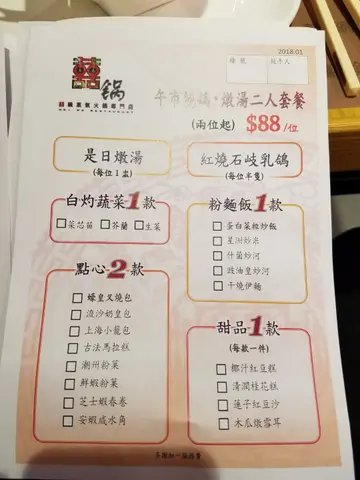 2018.01
檯號
經手人
囍鍋
囍鍋蒸氣火鍋專門店
午市乳鴿·燉湯二人套餐
(兩位起) $88/位
是日燉湯
(每位1盅)
紅燒石岐乳鴿
(每位半隻)
白灼蔬菜1款
□菜芯苗 □芥蘭 □生菜
粉麵飯1款
□ 蛋白菜粒炒飯
□ 星洲炒米
□ 什菌炒河
□ 豉油皇炒河
□ 干燒伊麵
點心2款
□ 蠔皇叉燒包
□ 流沙奶皇包
□ 上海小籠包
□ 古法馬拉糕
□ 潮州粉菓
□ 鮮蝦粉菓
□ 芝士蝦春卷
□ 安蝦咸水角
甜品1款
(每款一件)
□ 椰汁紅豆糕
□ 清潤桂花糕
□ 蓮子紅豆沙
□ 木瓜燉雪耳
多謝加一服務費